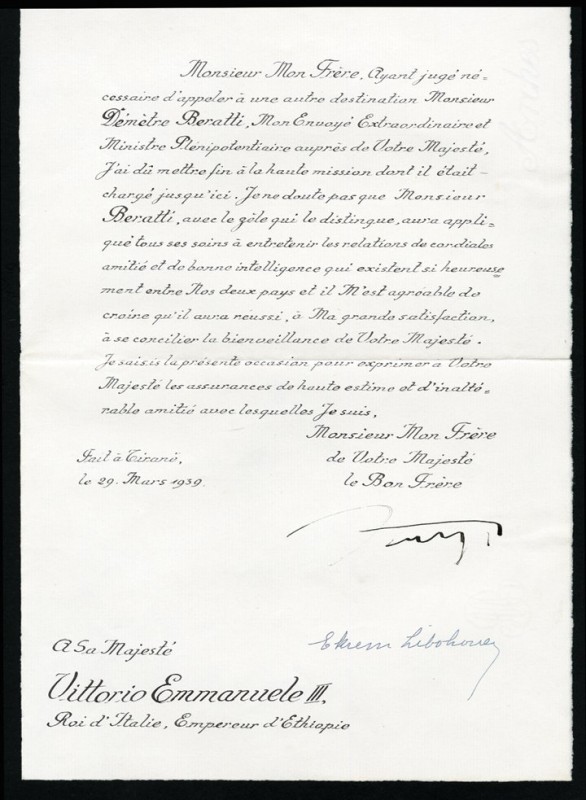 Monsieur Mon Frère, Ayant jugé né=
cessaire d'appeler à une autre destination Monsieur
Démètre Beratti, Mon Envoyé Extraordinaire et
Ministre Plénipotentiaire auprès de Votre Majesté,
J'ai dû mettre fin à la haute mission dont il était -
chargé jusqu'ici. Je ne doute pas que Monsieur
Beratti, avec le zèle qui le distingue, aura appli=
qué tous ses soins à entretenir les relations de cordiales
amitié et de bonne intelligence qui existent si heureuse
ment entre Nos deux pays et il M'est agréable de
croire qu'il aura réussi, à Ma grande satisfaction,
à se concilier la bienveillance de Votre Majesté.
Je saisis la présente occasion pour exprimer à Votre
Majesté les assurances de haute estime et d'inalté=
rable amitié avec lesquelles Je suis,
Monsieur Mon Frère
de Votre Majesté
le Bon Frère
Fait à Tirané,
le 29. Mars 1939.
Ekrem Libohova
A Sa Majesté
Vittorio Emmanuele III,
Roi d'Italie, Empereur d'Ethiopie